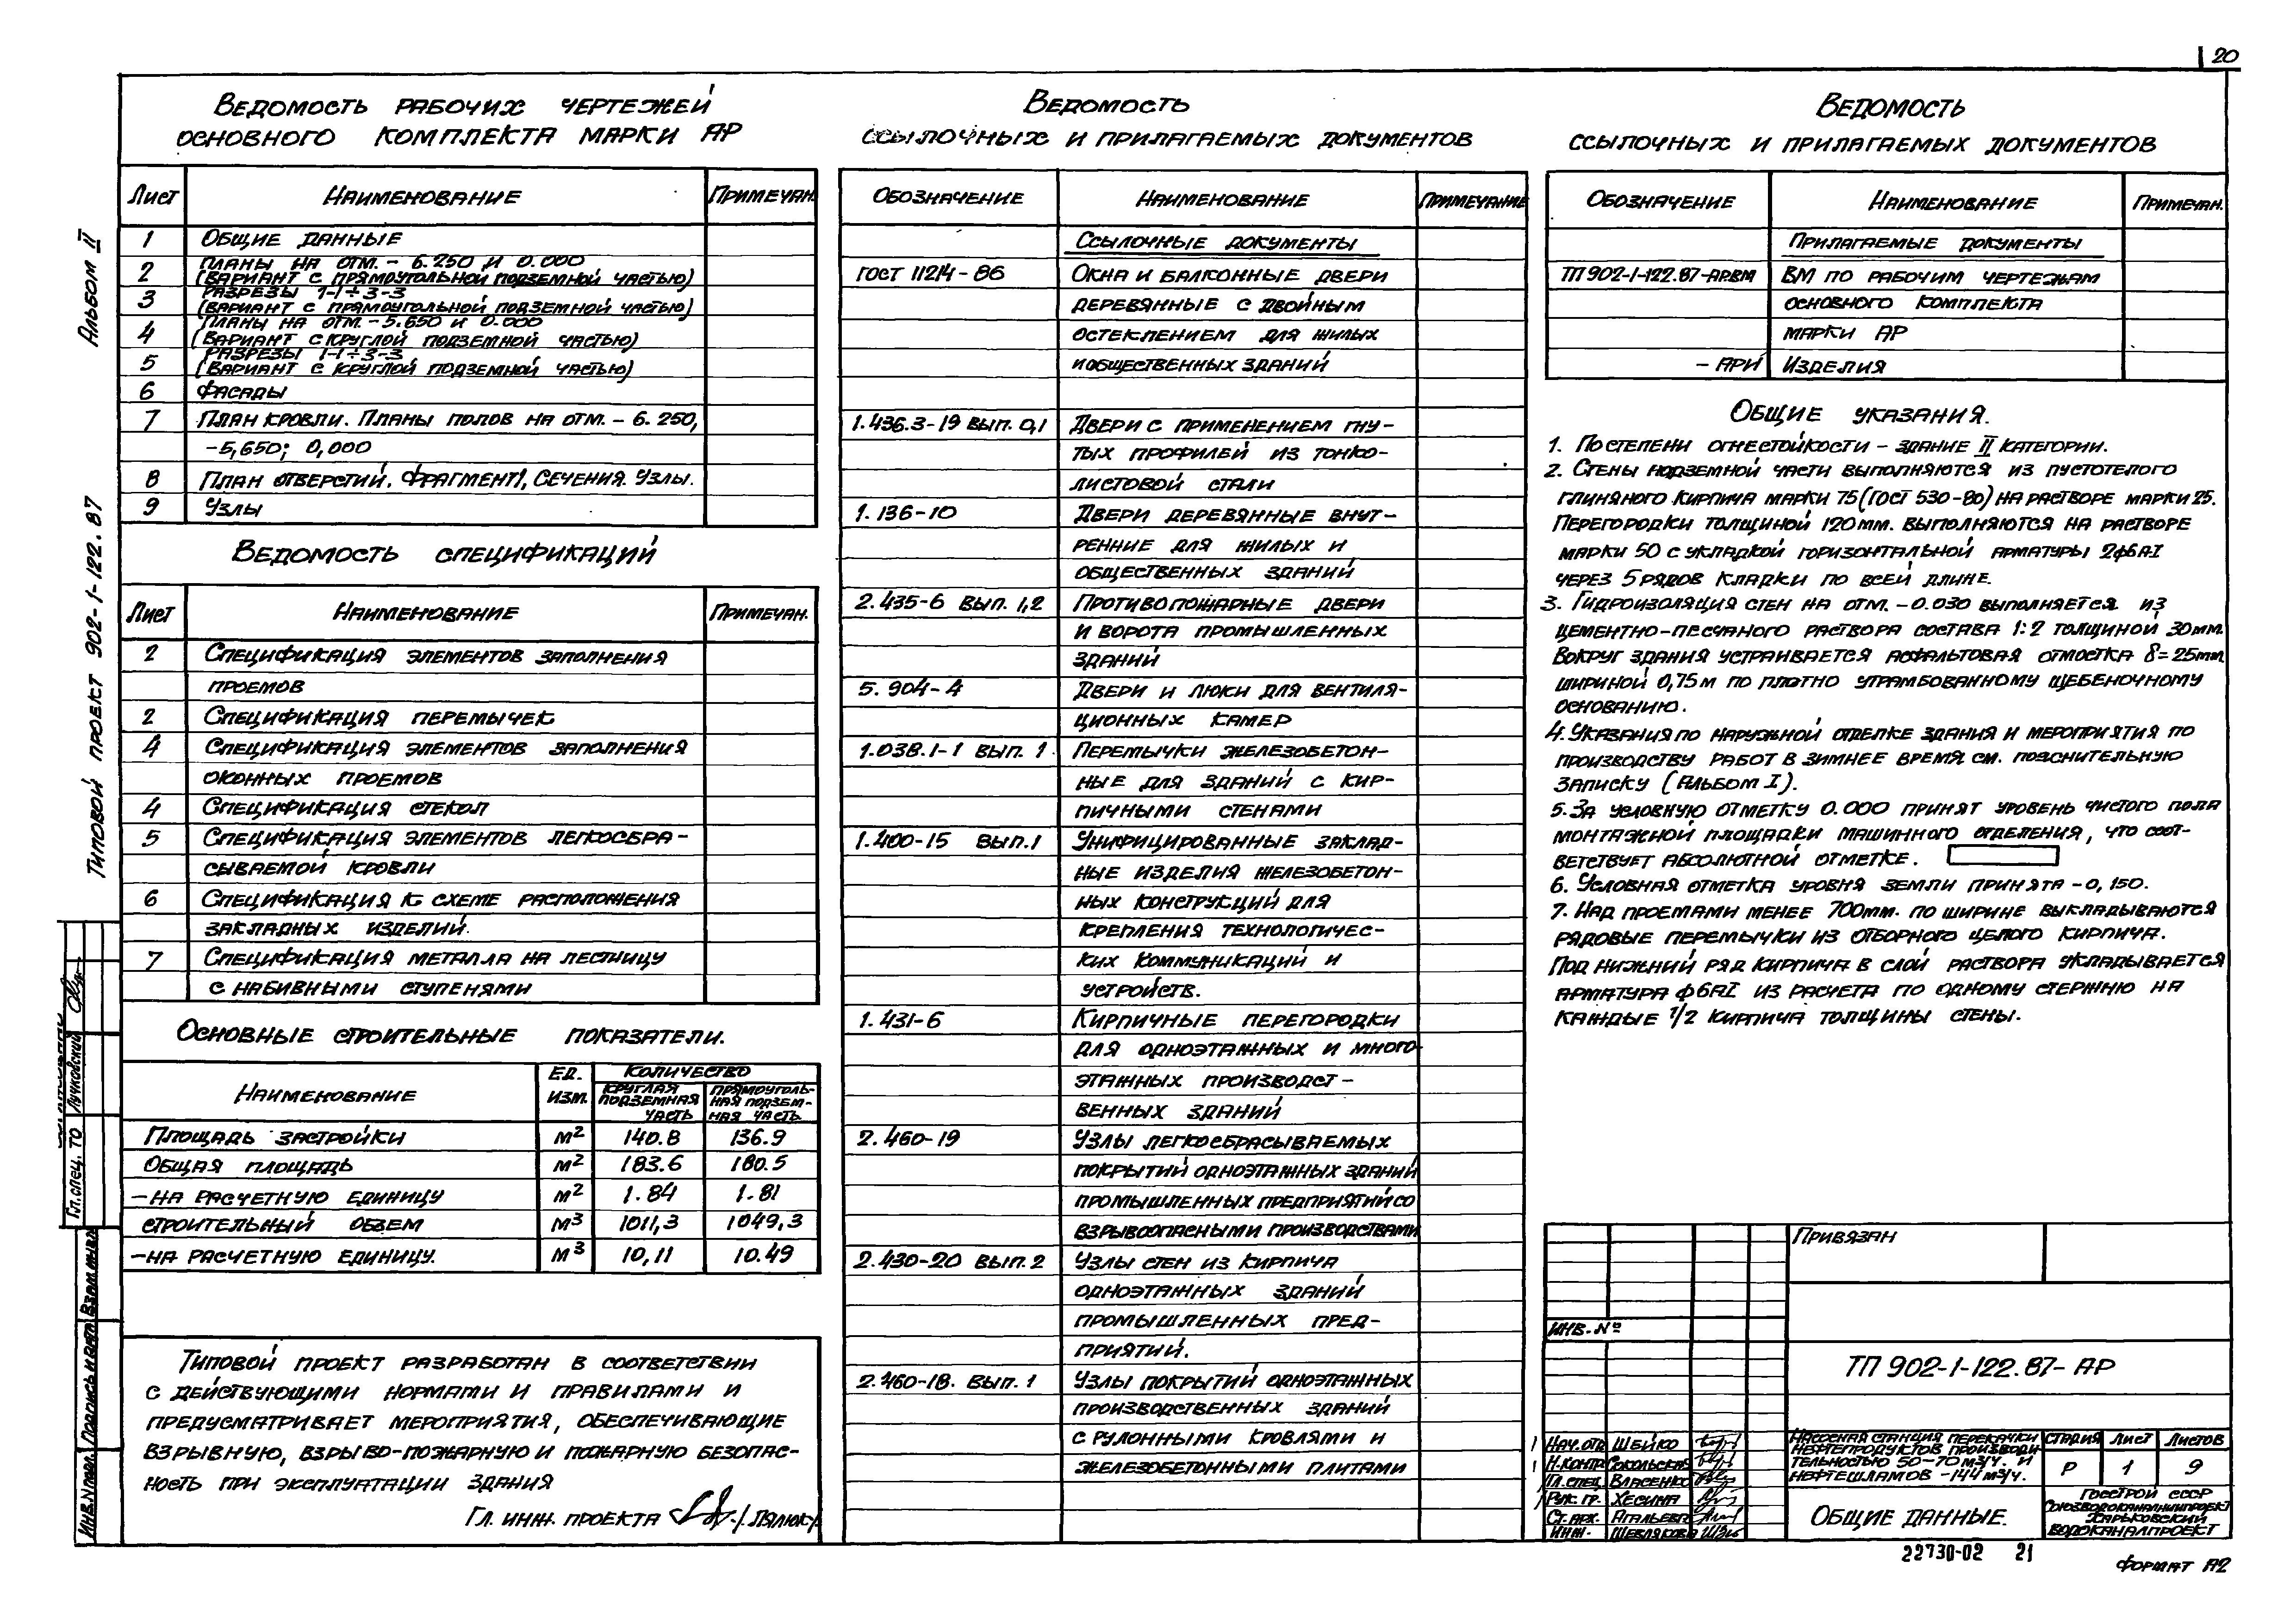 20
Ведомость рабочих чертежей
основного комплекта марки АР
Лист Наименование Примечан.
1 Общие данные
2 Планы на отм. - 6.250 и 0.000
(вариант с прямоугольной подземной частью)
3 Разрезы 1-1÷3-3
(вариант с прямоугольной подземной частью)
4 Планы на отм. - 5.650 и 0.000
(вариант с круглой подземной частью)
5 Разрезы 1-1÷3-3
(вариант с круглой подземной частью)
6 Фасады
7 План кровли. Планы полов на отм. - 6.250,
-5,650; 0,000
8 План отверстий. Фрагмент 1, Сечения. Узлы.
9 Узлы
Ведомость спецификаций
Лист Наименование Примечан.
2 Спецификация элементов заполнения
проемов
2 Спецификация перемычек
4 Спецификация элементов заполнения
оконных проемов
4 Спецификация стекол
5 Спецификация элементов легкосбра-
сываемой кровли
6 Спецификация к схеме расположения
закладных изделий.
7 Спецификация металла на лестницу
с набивными ступенями
Основные строительные показатели.
Наименование Ед. изм. Количество
круглая подземная часть прямоуголь-ная подзем-ная часть
Площадь застройки м² 140.8 136.9
Общая площадь м² 183.6 180.5
-на расчетную единицу м² 1.84 1.81
строительный объем м³ 1011,3 1049,3
-на расчетную единицу. м³ 10,11 10.49
Типовой проект разработан в соответствии
с действующими нормами и правилами и
предусматривает мероприятия, обеспечивающие
взрывную, взрыво-пожарную и пожарную безопас-
ность при эксплуатации здания
Гл. инж. проекта
Ведомость
ссылочных и прилагаемых документов
Обозначение Наименование Примечание
Ссылочные документы
ГОСТ 11214-86 Окна и балконные двери
деревянные с двойным
остеклением для жилых
и общественных зданий
1.436.3-19 вып. 0,1 Двери с применением гну-
тых профилей из тонко-
листовой стали
1.136-10 Двери деревянные внут-
ренние для жилых и
общественных зданий
2.435-6 вып. 1,2 Противопожарные двери
и ворота промышленных
зданий
5.904-4 Двери и люки для вентиля-
ционных камер
1.038.1-1 вып. 1 Перемычки железобетон-
ные для зданий с кир-
пичными стенами
1.400-15 вып.1 Унифицированные заклад-
ные изделия железобетон-
ных конструкций для
крепления технологичес-
ких коммуникаций и
устройств.
1.431-6 Кирпичные перегородки
для одноэтажных и много-
этажных производст-
венных зданий
2.460-19 Узлы легкосбрасываемых
покрытий одноэтажных зданий
промышленных предприятий со
взрывоопасными производствами
2.430-20 вып. 2 Узлы стен из кирпича
одноэтажных зданий
промышленных пред-
приятий.
2.460-18. вып. 1 Узлы покрытий одноэтажных
производственных зданий
с рулонными кровлями и
железобетонными плитами
Ведомость
ссылочных и прилагаемых документов
Обозначение Наименование Примечан.
Прилагаемые документы
ТП 902-1-122.87-АР.ВМ ВМ по рабочим чертежам
основного комплекта
марки АР
- АРИ Изделия
Общие указания.
1. По степени огнестойкости - здание II категории.
2. Стены надземной части выполняются из пустотелого
глиняного кирпича марки 75 (ГОСТ 530-80) на растворе марки 25.
Перегородки толщиной 120мм. выполняются на растворе
марки 50 с укладкой горизонтальной арматуры 2ф6АI
через 5 рядов кладки по всей длине.
3. Гидроизоляция стен на отм. -0.030 выполняется из
цементно-песчаного раствора состава 1:2 толщиной 30мм.
Вокруг здания устраивается асфальтовая отмостка δ=25мм
шириной 0,75м по плотно утрамбованному щебеночному
основанию.
4. Указания по наружной отделке здания и мероприятия по
производству работ в зимнее время см. пояснительную
записку (Альбом I).
5. За условную отметку 0.000 принят уровень чистого пола
монтажной площадки машинного отделения, что соот-
ветствует абсолютной отметке.
6. Условная отметка уровня земли принята -0,150.
7. Над проемами менее 700мм. по ширине выкладываются
рядовые перемычки из отборного целого кирпича.
Под нижний ряд кирпича в слой раствора укладывается
арматура ф6АI из расчета по одному стержню на
каждые 1/2 кирпича толщины стены.
Привязан
Инв.№
ТП 902-1-122.87- АР
Нач.отд. Шейко
Н.контр. Сокольская
Гл.спец. Власенко
Рук. гр. Хесина
Ст.арх. Агальева
Инж. Шевлякова
Насосная станция перекачки
нефтепродуктов производи-
тельностью 50-70м³/ч. и
нефтешламов -144м³/ч.
Стадия Лист Листов
Р 1 9
Общие данные.
Госстрой СССР
Союзводоканалниипроект
Харьковский
Водоканалпроект
22730-02 21
Формат А2
Альбом II
Типовой проект 902-1-122.87
Гл.спец. ТО Лучковский
Инв.№подл. Подпись и дата Взам.инв.№